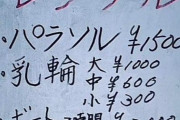 ・パラソル ¥1500
・乳輪 大 ¥1000
中 ¥600
小 ¥300